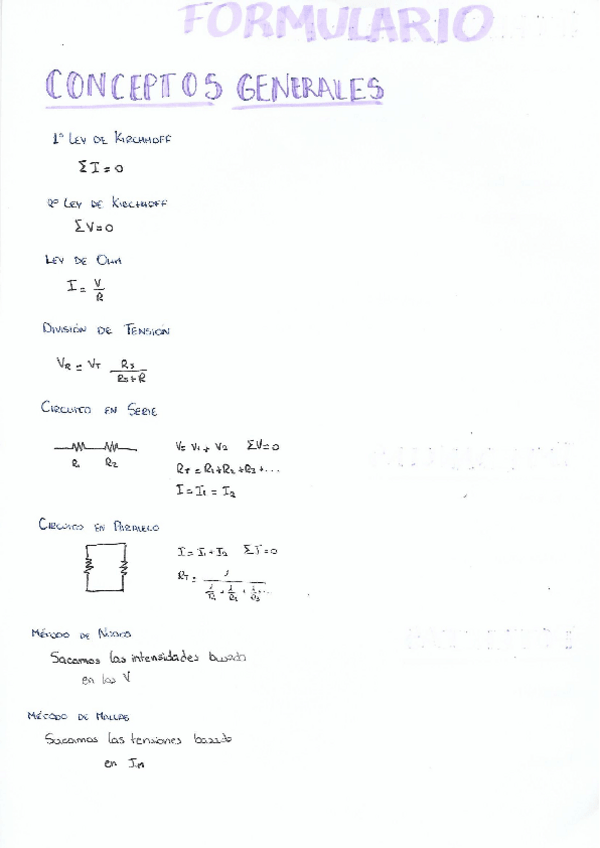 FORMULARIO
CONCEPTOS GENERALES
1º LEY DE KIRCHHOFF
ΣI = 0
2º LEY DE KIRCHHOFF
ΣV=0
LEY DE OHM
I = V/R
DIVISIÓN DE TENSIÓN
VR = VT Rs/(Rs+R)
CIRCUITO EN SERIE
V= V1 + V2 ΣV=0
RT = R1+R2+R3+...
I = I1 = I2
R1 R2
CIRCUITO EN PARALELO
I = I1 + I2 ΣI=0
RT = 1/(1/R1 + 1/R2 + 1/R3...)
MÉTODO DE NUDOS
Sacamos las intensidades basado
en las V
MÉTODO DE MALLAS
Sacamos las tensiones basado
en Im